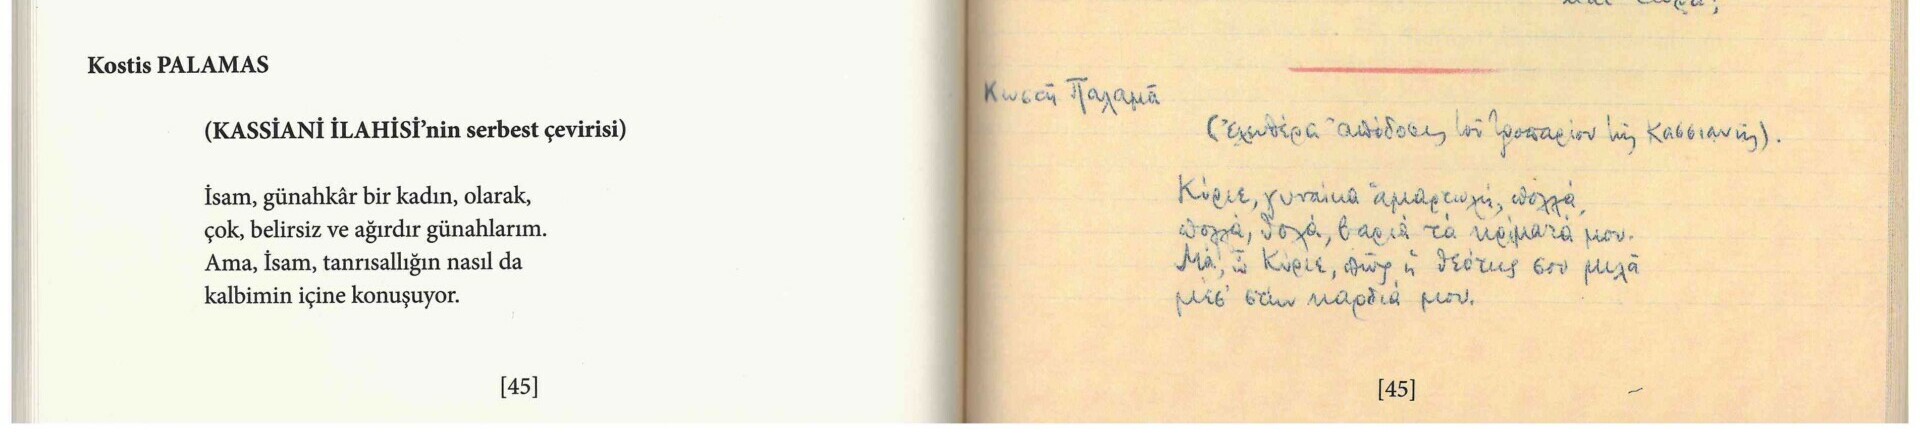 Kostis PALAMAS
(KASSİANİ İLAHİSİ’nin serbest çevirisi)
İsam, günahkâr bir kadın, olarak,
çok, belirsiz ve ağırdır günahlarım.
Ama, İsam, tanrısallığın nasıl da
kalbimin içine konuşuyor.
[45]
Κωστῆ Παλαμᾶ
(Ἐλευθέρα ἀπόδοσις τοῦ τροπαρίου τῆς Κασσιανῆς).
Κύριε, γυναίκα ἁμαρτωλή, πολλά,
πολλά, θολά, βαριά τὰ κρίματά μου.
Μά, ὦ Κύριε, πῶς ἡ θεότης σου μιλᾶ
μέσ' στὴν καρδιά μου.
[45]